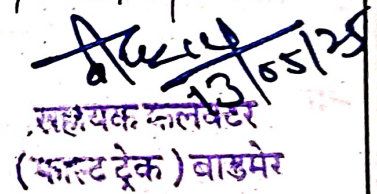 13/05/25
सहायक कलक्टर
(फास्ट ट्रेक) बाडमेर